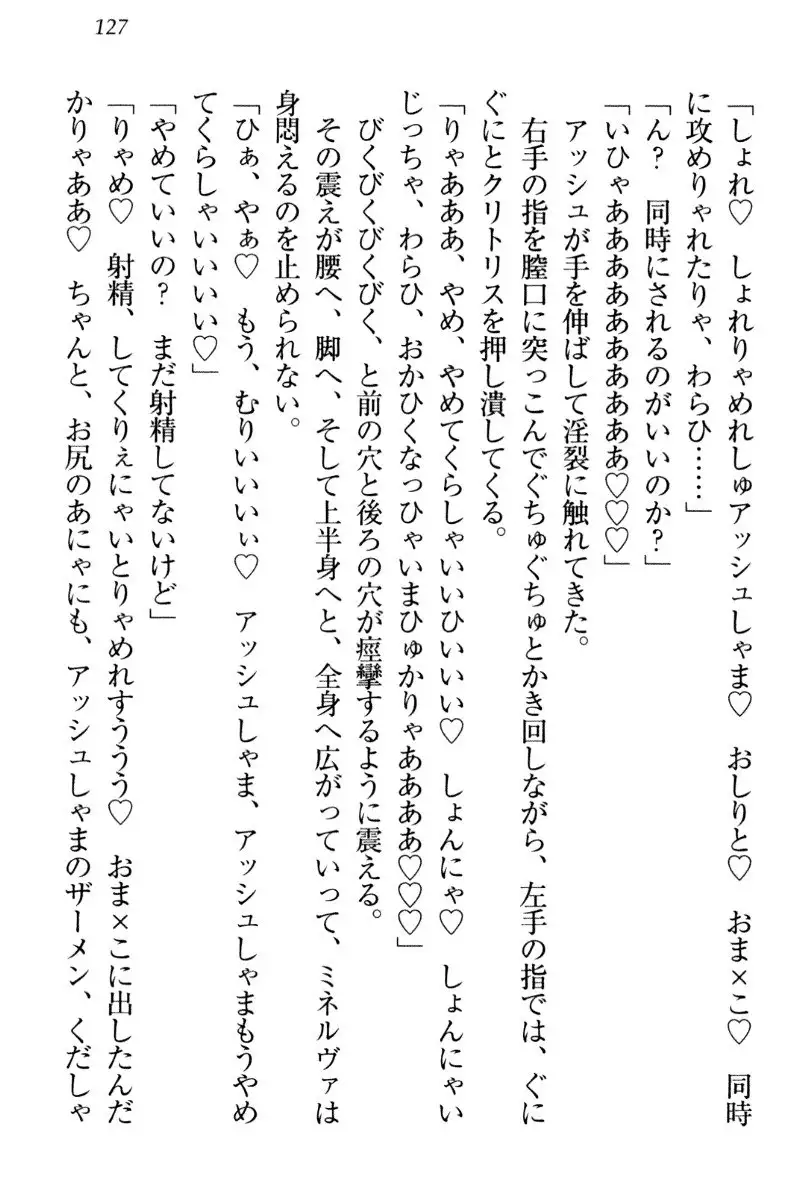 127
「しょれ♡　しょれりゃめれしゅアッシュしゃま♡　おしりと♡　おま×こ♡　同時
に攻めりゃれたりゃ、わらひ……」
「ん？　同時にされるのがいいのか？」
「いひゃああああああああああ♡♡♡」
　アッシュが手を伸ばして淫裂に触れてきた。
　右手の指を膣口に突っこんでぐちゅぐちゅとかき回しながら、左手の指では、ぐに
ぐにとクリトリスを押し潰してくる。
「りゃあああ、やめ、やめてくらしゃいいひいいい♡　しょんにゃ♡　しょんにゃい
じっちゃ、わらひ、おかひくなっひゃいまひゅかりゃああああ♡♡♡」
　びくびくびくびく、と前の穴と後ろの穴が痙攣するように震える。
　その震えが腰へ、脚へ、そして上半身へと、全身へ広がっていって、ミネルヴァは
身悶えるのを止められない。
「ひぁ、やぁ♡　もう、むりいいいぃ♡　アッシュしゃま、アッシュしゃまもうやめ
てくらしゃいいいい♡」
「やめていいの？　まだ射精してないけど」
「りゃめ♡　射精、してくりぇにゃいとりゃめれすううう♡　おま×こに出したんだ
かりゃああ♡　ちゃんと、お尻のあにゃにも、アッシュしゃまのザーメン、くだしゃ